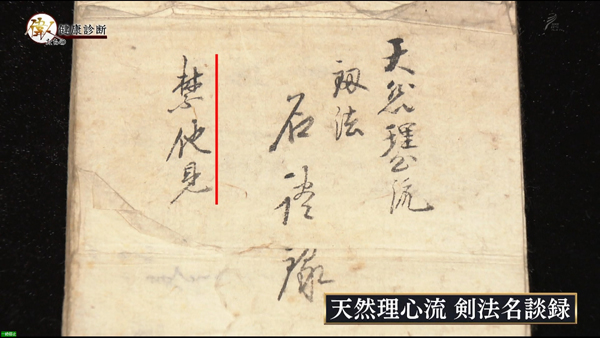 偉人
健康診断
天然理心流
釼法
名談録
禁他見
天然理心流 剣法名談録